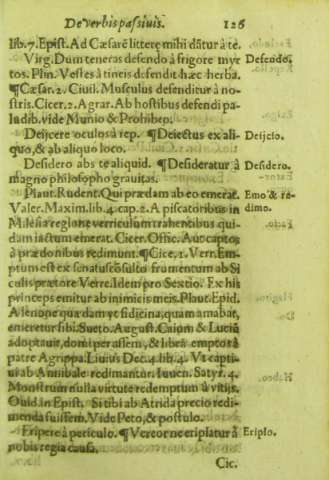 De verbis passiuis. 126
lib. 7. Epist. Ad Cæsarẽ litteræ mihi dãtur à te.
Virg. Dum teneras defendo à frigore myr Defendo.
tos. Plin. Vestes à tineis defendit hæc herba.
¶Cæsar. 2. Ciuil. Musculus defenditur à no-
stris. Cicer. 2. Agrar. Ab hostibus defendi pa-
ludib. vide Munio & Prohibeo.
Deijcere oculos à rep. ¶Deiectus ex ali- Deijcio.
quo, & ab aliquo loco.
Desidero abs te aliquid. ¶Desideratur à Desidero.
magno philosopho grauitas.
Plaut. Rudent. Qui prædam ab eo emerat. Emo & re-
Valer. Maxim. lib. 4. cap. 2. A piscatoribus in dimo.
Milesia regione verriculum trahentibus qui-
dam iactum emerat. Cicer. Offic. Aut captos
à prædonibus redimunt. ¶Cic. 1. Verr. Em-
ptum est ex senatuscõsulto frumentum ab Si
culis prætore Verre. Idem pro Sextio. Ex his
princeps emitur ab inimicis meis. Plaut. Epid.
A lenone quædam vt fidicina, quam amabat,
emeretur sibi. Sueto. August. Caium & Luciũ
adoptauit, domi per assem, & librã emptos à
patre Agrippa. Liuius Dec. 4. lib. 4. Vt capti-
ui ab Annibale redimantur. Iuuen. Satyr. 4.
Monstrum nulla virtute redemptum à vitijs.
Ouid. in Epist. Si tibi ab Atrida precio redi-
menda fuissem. Vide Peto, & postulo.
Eripere à periculo. ¶Vereor ne eripiatur à Eripio.
nobis regia causa.
Cic.